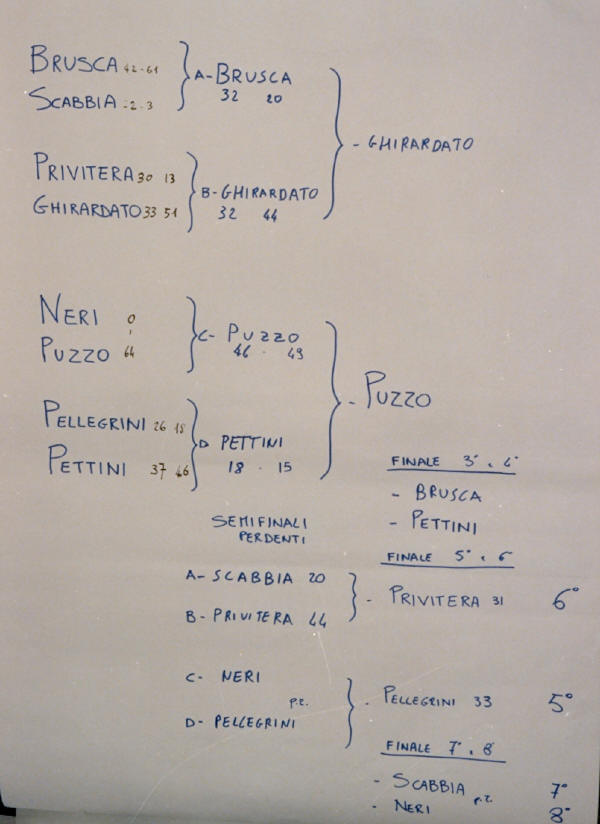 BRUSCA 42-61
SCABBIA -2-3
A- BRUSCA
32 20
PRIVITERA 30 13
GHIRARDATO 33 51
B- GHIRARDATO
32 44
- GHIRARDATO
NERI 0
PUZZO 64
C- PUZZO
46 - 43
PELLEGRINI 26 18
PETTINI 37 46
D PETTINI
18 - 15
- PUZZO
FINALE 3° - 4°
- BRUSCA
- PETTINI
SEMIFINALI
PERDENTI
A- SCABBIA 20
B- PRIVITERA 44
FINALE 5° - 6°
- PRIVITERA 31 6°
C- NERI
p.r.
D- PELLEGRINI
- PELLEGRINI 33 5°
FINALE 7° - 8°
- SCABBIA 7°
p.r.
- NERI 8°